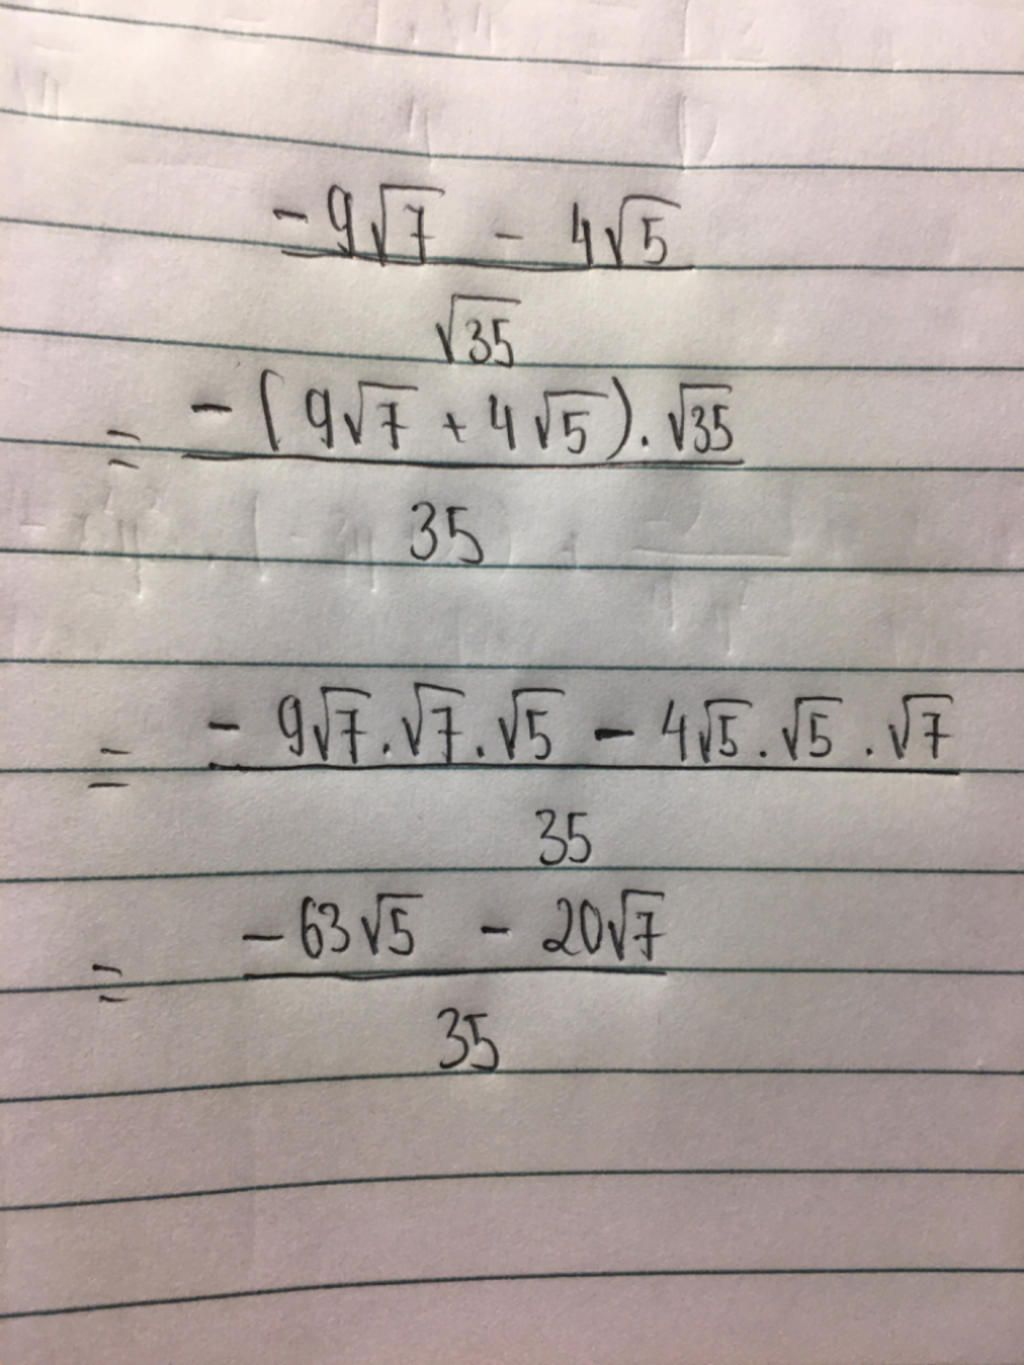 -9√7 - 4√5
√35
= -(9√7 + 4√5).√35
35
= -9√7.√7.√5 - 4√5.√5.√7
35
= -63√5 - 20√7
35